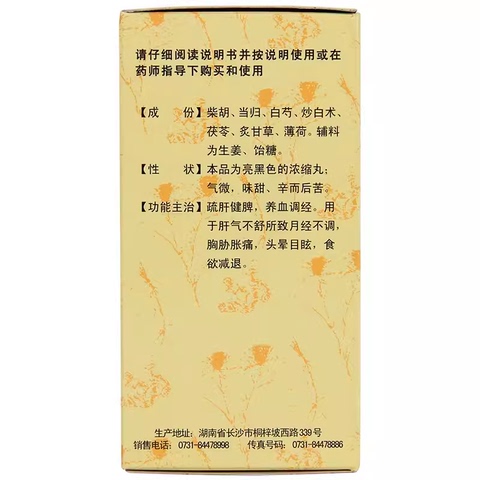 请仔细阅读说明书并按说明使用或在
药师指导下购买和使用
【成　份】柴胡、当归、白芍、炒白术、
茯苓、炙甘草、薄荷。辅料
为生姜、饴糖。
【性　状】本品为亮黑色的浓缩丸；
气微，味甜、辛而后苦。
【功能主治】疏肝健脾，养血调经。用
于肝气不舒所致月经不调，
胸胁胀痛，头晕目眩，食
欲减退。
生产地址：湖南省长沙市桐梓坡西路339号
销售电话：0731-84478998　传真号码：0731-84478886